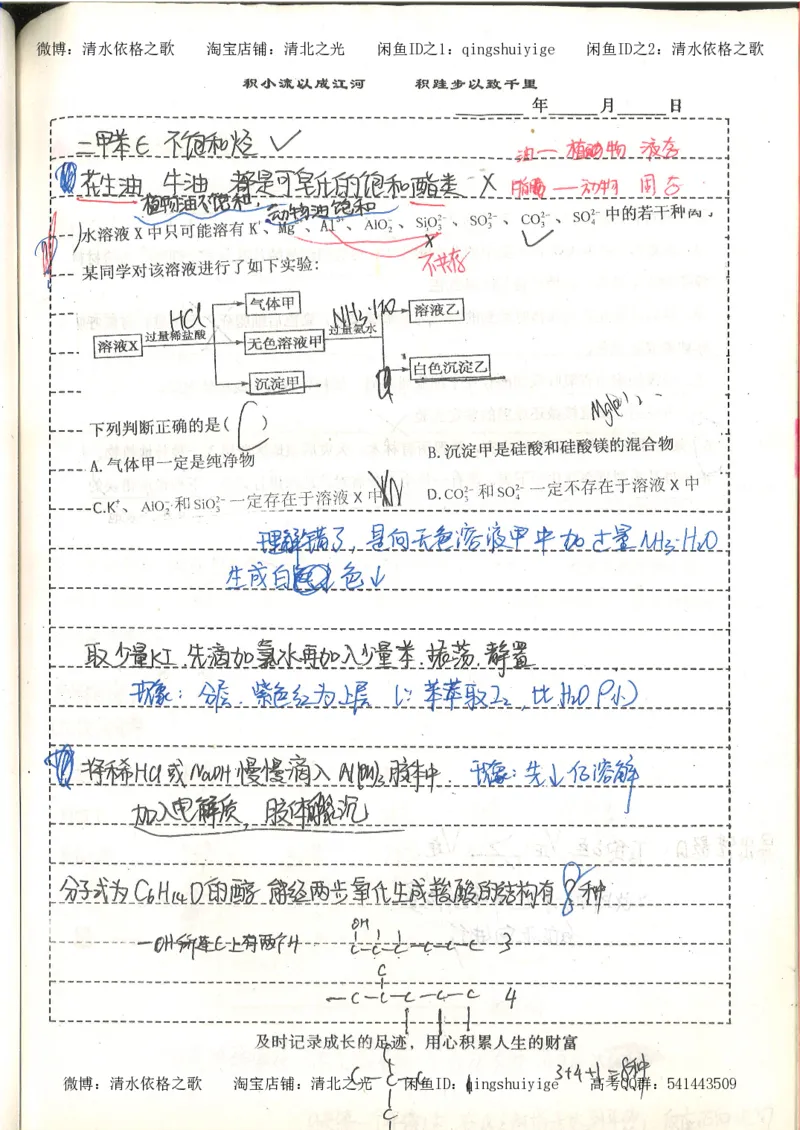 微博：清水依格之歌 淘宝店铺：清北之光 闲鱼ID之1：qingshuiyige 闲鱼ID之2：清水依格之歌
积小流以成江河 积跬步以致千里
年 月 日
二甲苯∈ 不饱和烃 ✓
油— 植助物 液态
花生油、牛油 都是可皂化的饱和酯类 ×
脂肪 —动物 固态
植物油不饱和，动物油饱和
水溶液 X 中只可能溶有 K⁺、Mg²⁺、Al³⁺、AlO₂⁻、SiO₃²⁻、SO₃²⁻、CO₃²⁻、SO₄²⁻ 中的若干种
× ✓
某同学对该溶液进行了如下实验：
不共存
气体甲
HCl NH₃·H₂O
溶液乙
溶液X 过量稀盐酸 无色溶液甲 过量氨水
白色沉淀乙
沉淀甲
下列判断正确的是( C )
A. 气体甲一定是纯净物
B. 沉淀甲是硅酸和硅酸镁的混合物
C.K⁺、AlO₂⁻和 SiO₃²⁻一定存在于溶液 X 中
D.CO₃²⁻和 SO₄²⁻一定不存在于溶液 X 中
理解错了，是向无色溶液甲中加过量NH₃·H₂O
生成白色↓
取少量KI 先滴加氯水再加入少量苯.振荡.静置
现象：分层.紫色红为上层 (∵苯萃取I₂，比H₂O ρ小)
将稀HCl或NaOH慢慢滴入Al(OH)₃胶体中. 现象：先↓后溶解
加入电解质，胶体聚沉
分子式为C₆H₁₄O的醇 能经两步氧化生成羧酸的结构有 8 种
—OH所连C上有两个H
OH
C-C-C-C-C-C 3
C
—C-C-C-C-C 4
及时记录成长的足迹，用心积累人生的财富
C
C-C-C
C
3+4+1=8种
微博：清水依格之歌 淘宝店铺：清北之光 闲鱼ID：qingshuiyige 高考QQ群：541443509